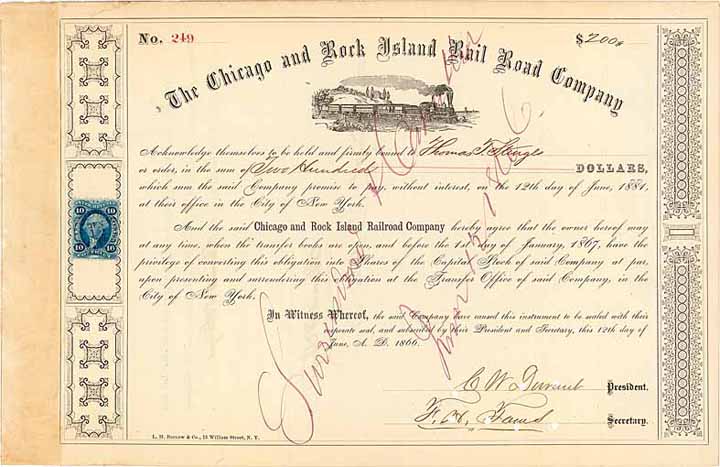 No. 249
$200
The Chicago and Rock Island Rail Road Company
Acknowledge themselves to be held and firmly bound to Thomas T.
or order, in the sum of Two Hundred DOLLARS,
which sum the said Company promise to pay, without interest, on the 12th day of June, 1881,
at their office in the City of New York.
And the said Chicago and Rock Island Railroad Company hereby agree that the owner hereof may
at any time, when the transfer books are open, and before the 1st day of January, 1867, have the
privilege of converting this obligation into Shares of the Capital Stock of said Company at par,
upon presenting and surrendering this obligation at the Transfer Office of said Company, in the
City of New York.
In Witness Whereof, the said Company have caused this instrument to be sealed with their
corporate seal, and subscribed by their President and Secretary, this 12th day of
June, A. D. 1866.
C W Durant President.
F. H. Secretary.
Surrendered
10 10
10 10
William Street, N. Y.